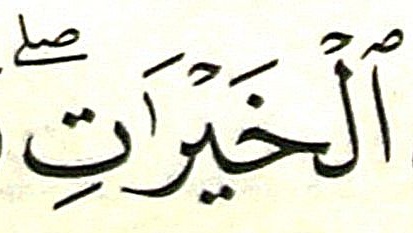 ٱلْخَيْرَٰتِ ۖ